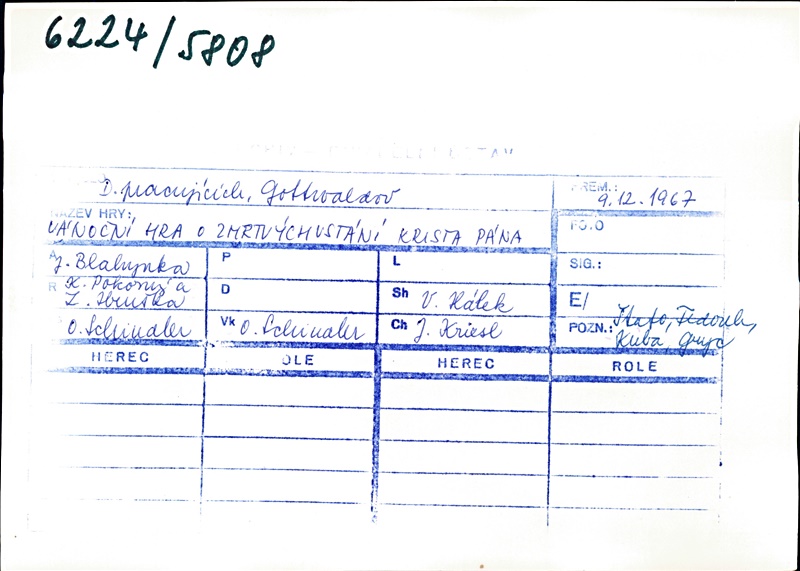 6224/5808
D. pracujících, Gottwaldov
PREM.: 9.12.1967
NÁZEV HRY:
VÁNOČNÍ HRA O ZMRTVÝCHVSTÁNÍ KRISTA PÁNA
FO.O
A J. Blahynka
P
L
SIG.:
R K. Pokorný a
Z. Hruška
D
Sh V. Hálek
E/
O. Schindler
Vk O. Schindler
Ch J. Kriesl
POZN.:
Kuba,
HEREC
OLE
HEREC
ROLE